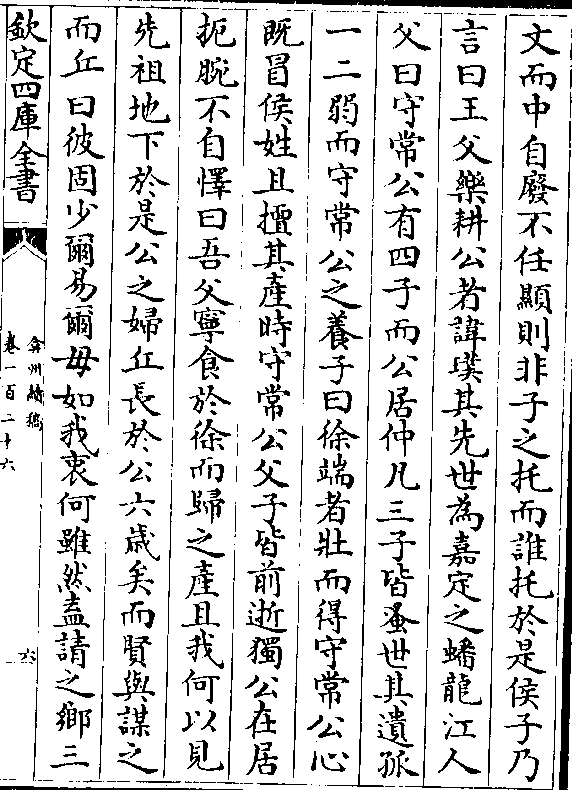 文而中自廢不任顯則非子之托而誰托於是侯子乃
言曰王父樂耕公若諱璞其先世為嘉定之蟠龍江人
父曰守常公有四子而公居仲凡三子皆蚤世其遺孤
一二弱而守常公之養子曰徐端者壯而得守常公心
既冒侯姓且擅其產時守常公父子皆前逝獨公在居
扼腕不自懌曰吾父寧食於徐而歸之產且我何以見
先祖地下於是公之婦丘長於公六歲矣而賢與謀之
而丘曰彼固少爾易爾毋如我衷何雖然盍請之鄉三
欽定四庫全書
弇州續稿
卷一百二十六
六